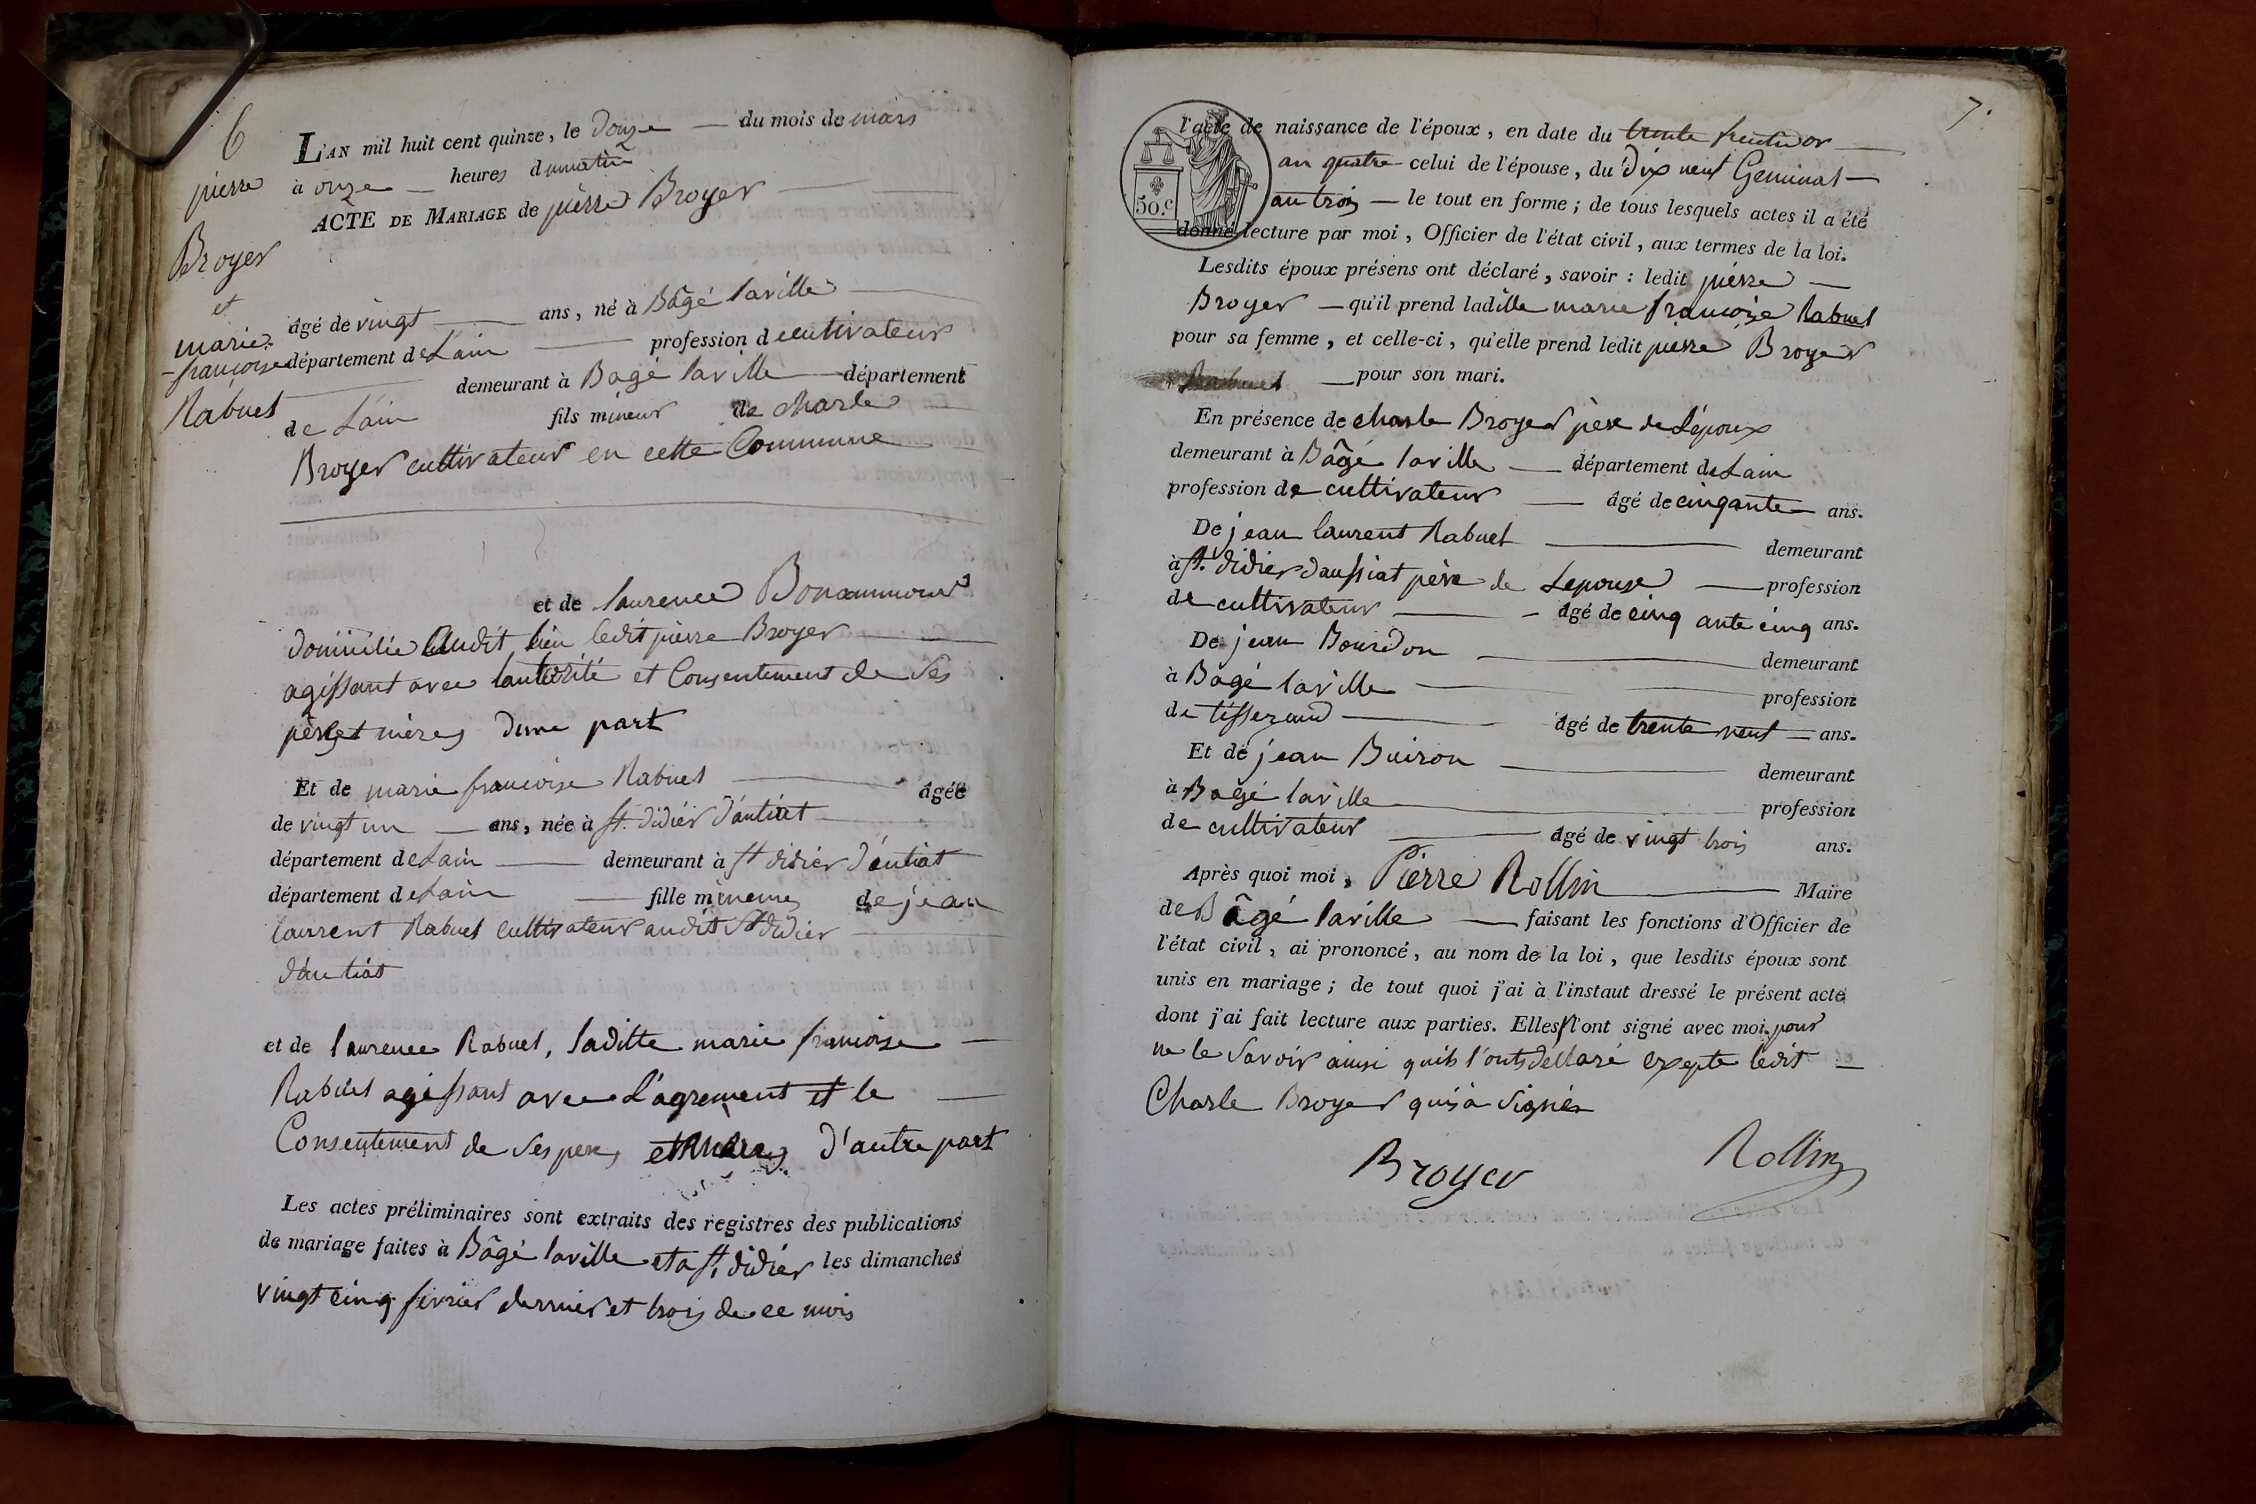 6
pierre
Broyer
et
marie
françoise
Rabuel
L'AN mil huit cent quinze, le Douze — du mois de mars
à onze — heures du matin
ACTE DE MARIAGE de pierre Broyer
âgé de vingt ans, né à Bâgé laville
département de Lain profession de cultivateur
demeurant à Bagé laville département
de Lain fils mineur de charle
Broyer cultivateur en cette Commune
et de laurence
domicilié audit lieu ledit pierre Broyer
agissant avec lautorité et Consentement de ses
père et mères dune part
Et de marie francoise Rabuel âgée
de vingt un ans, née à st. didier d'autiat
département de Lain demeurant à st didier d'autiat
département de Lain fille mineure de jean
laurent Rabuel cultivateur audit st didier
d'autiat
et de laurence Rabuel, laditte marie francoise
Rabuel agissant avec L'agrement et le
Consentement de ses peres et meres d'autre part
Les actes préliminaires sont extraits des registres des publications
de mariage faites à Bâgé laville et a st. didier les dimanches
vingt cinq fevrier dernier et trois de ce mois
7.
50.c
l'acte de naissance de l'époux, en date du trente fructidor
an quatre celui de l'épouse, du Dix neuf Germinal
an trois — le tout en forme; de tous lesquels actes il a été
donné lecture par moi, Officier de l'état civil, aux termes de la loi.
Lesdits époux présens ont déclaré, savoir : ledit pierre
Broyer — qu'il prend ladille marie francoise Rabuel
pour sa femme, et celle-ci, qu'elle prend ledit pierre Broyer
pour son mari.
En présence de charle Broyer père de L'époux
demeurant à Bâgé laville département de Lain
profession de cultivateur âgé de cinqante ans.
De jean laurent Rabuel demeurant
à st. didier daussiat père de Lepouse profession
de cultivateur âgé de cinq ante cinq ans.
De jean Bourdon demeurant
à Bagé laville profession
de tisserand âgé de trente neuf ans.
Et de jean Buiron demeurant
à Bagé laville profession
de cultivateur âgé de vingt trois ans.
Après quoi moi, Pierre Rollin Maire
de Bâgé laville faisant les fonctions d'Officier de
l'état civil, ai prononcé, au nom de la loi, que lesdits époux sont
unis en mariage; de tout quoi j'ai à l'instaut dressé le présent acte
dont j'ai fait lecture aux parties. Elles l'ont signé avec moi. pour
ne le savoir ainsi quils l'ont dellaré exepte ledit
Charle Broyer qui à signé
Broyer
Rollin